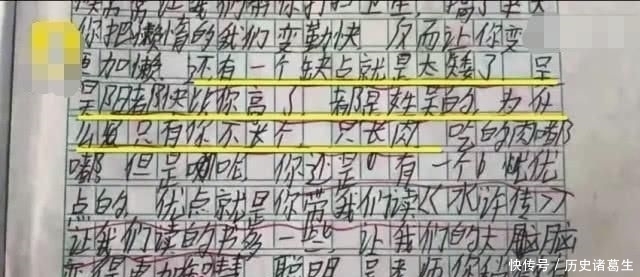 你把懒惰的我们变勤快 反而让你变
更加懒. 还有一个缺点就是太矮了 吴
昊阳都快比你高了, 都是姓吴的, 为什
么只有你不长个, 只长肉, 吃的肉嘟
嘟 但是呢, 你还是有一个小忧优
点的, 优点就是你带我们读《水浒传》
让我们读的书多一些 让我们的大脑脑
变得更加
快传号/历史诸葛生